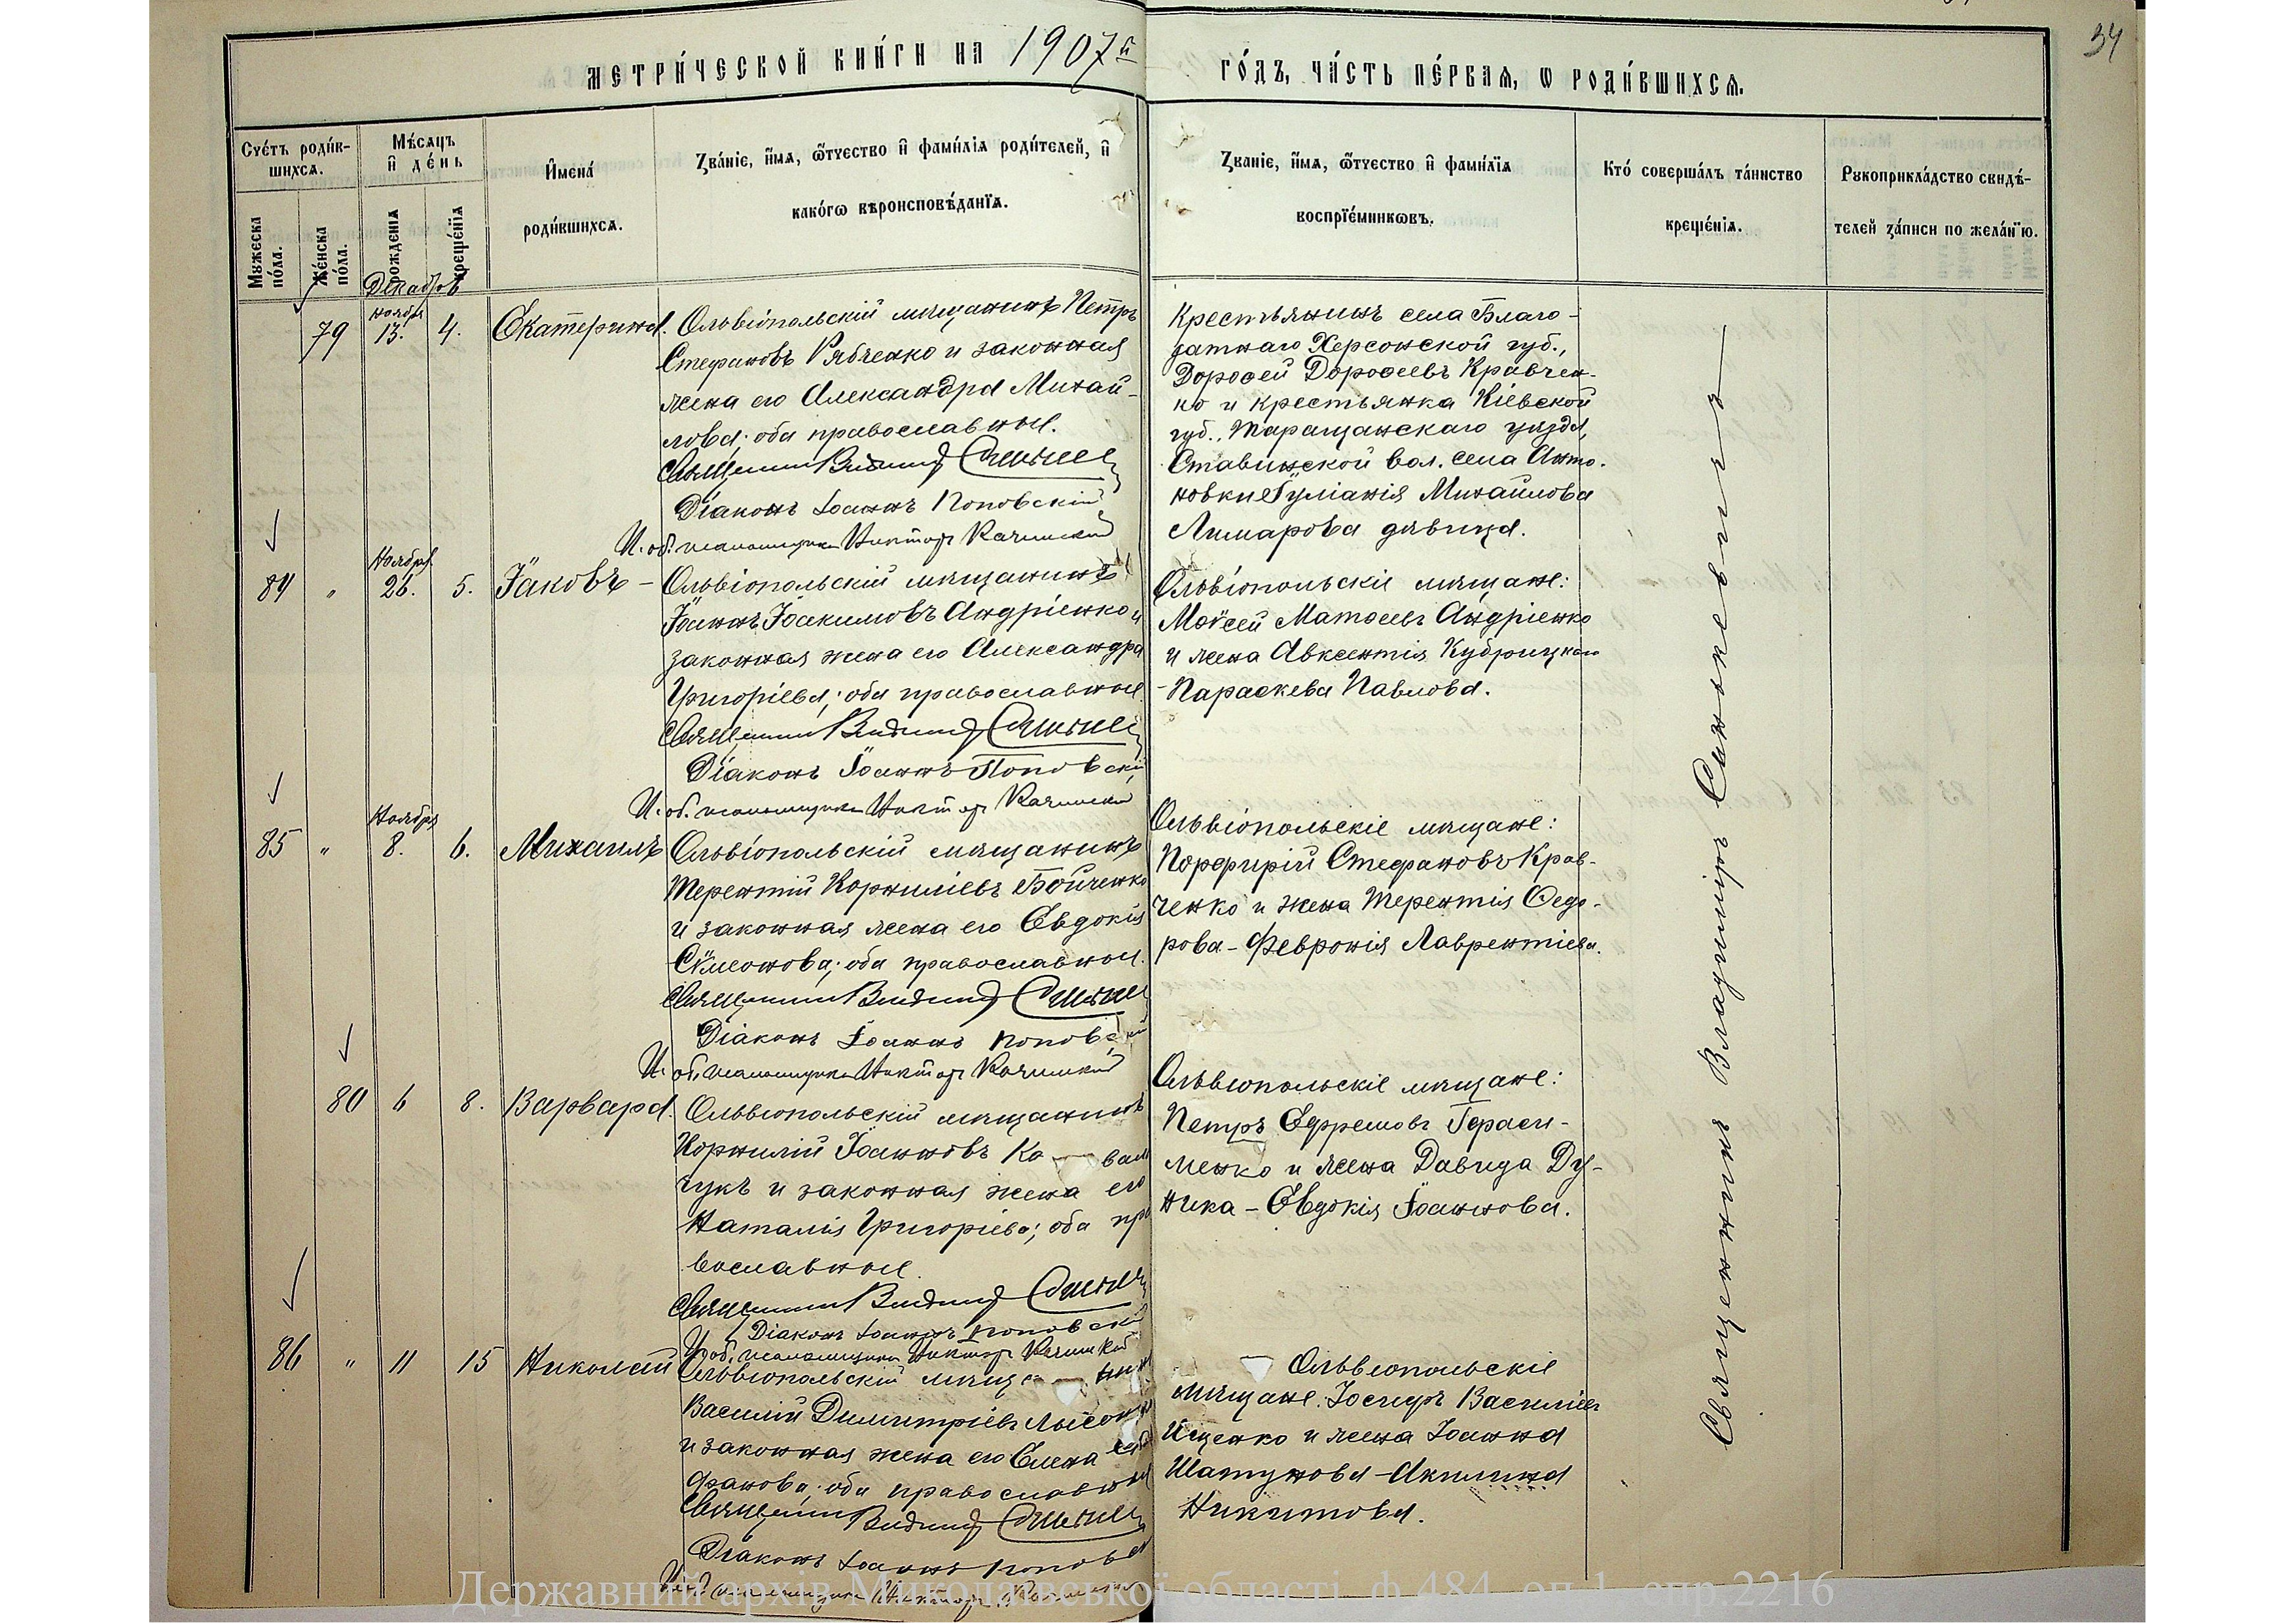 34
МЕТРИ́ЧЕСКОЙ КНИ́ГИ НА 1907й
ГО́ДЪ, ЧА́СТЬ ПЕ́РВАЯ, Ѡ РОДИ́ВШИХСѦ.
Сче́тъ роди́в-
шихсѧ.
Мꙋжеска по́ла.
Же́нска по́ла.
Мѣ́сѧцъ
и҆ де́нь
рожденїѧ
креще́нїѧ
И҆мена́
роди́вшихсѧ.
Зва́нїе, и҆́мѧ, ѻ҆́тчество и҆ фамі́лїѧ роди́телей, и҆
како́гѡ вѣроисповѣ́данїѧ.
Зва́нїе, и҆́мѧ, ѻ҆́тчество и҆ фамі́лїѧ
воспрїе́мникѡвъ.
Кто́ соверша́лъ та́инство
креще́нїѧ.
Рꙋкоприкла́дство свидѣ́-
телей за́писи по жела́нїю.
Декабрь
79
Ноября 13.
4.
Екатерина.
Ольвіопольскій мѣщанинъ Петръ
Стефановъ Рябченко и законная
жена его Александра Михай-
лова; оба православные.
Священникъ Владиміръ
Діаконъ Іоаннъ Поповскій
И. об. псаломщика Викторъ Качинскій
Крестьянинъ села Благо-
датнаго Херсонской губ.,
Дорофей Дорофеевъ Кравчен-
ко и крестьянка Кіевской
губ., Таращанскаго уѣзда,
Ставищской вол. села Анто-
новки Іуліанія Михайлова
Лимарова дѣвица.
84
"
Ноября 26.
5.
Іаковъ –
Ольвіопольскій мѣщанинъ
Іоаннъ Іоакимовъ Андріенко и
законная жена его Александра
Григоріева; оба православные
Священникъ Владиміръ
Діаконъ Іоаннъ Поповскій
И. об. псаломщика Викторъ Качинскій
Ольвіопольскіе мѣщане:
Моѵсей Матфеевъ Андріенко
и жена Авксентія Кубрицкаго
– Параскева Павлова.
85
"
Ноября 8.
6.
Михаилъ
Ольвіопольскій мѣщанинъ
Терентій Корниліевъ Бойченко
и законная жена его Евдокія
Сѵмеонова; оба православные.
Священникъ Владиміръ
Діаконъ Іоаннъ Поповскій
И. об. псаломщика Викторъ Качинскій
Ольвіопольскіе мѣщане:
Порфирій Стефановъ Крав-
ченко и жена Терентія Федо-
рова – Февронія Лаврентіева.
80
6
8.
Варвара.
Ольвіопольскій мѣщанинъ
Корнилій Іоанновъ Ко – вал
чукъ и законная жена его
Наталія Григоріева; оба пра
вославные.
Священникъ Владиміръ
Діаконъ Іоаннъ Поповскій
И. об. псаломщика Викторъ Качинскій
Ольвіопольскіе мѣщане:
Петръ Ефремовъ Гераси-
менко и жена Давида Ду-
ника – Евдокія Іоаннова.
86
"
11
15
Николай
Ольвіопольскій мѣща нинъ
Василій Димитріевъ
и законная жена его Елена
фанова; оба православные
Священникъ Владиміръ
Діаконъ Іоаннъ Поповск
И. об. псаломщика Викторъ Качинскій
Ольвіопольскіе
мѣщане: Іосифъ Василіев
Ищенко и жена Іоанна
Шатунова – Акилина
Никитова.
Священникъ Владиміръ Синкевичъ
Державний архів Миколаївської області, ф.484, оп.1, спр.2216